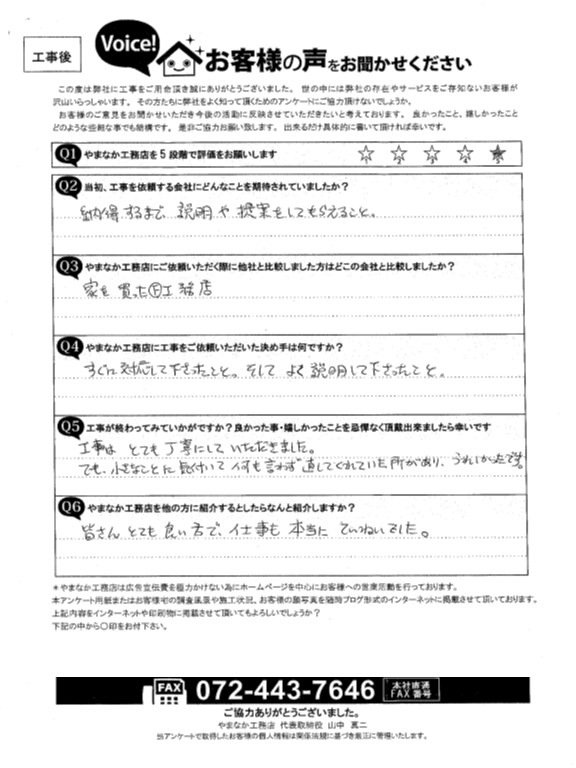 工事後
Voice!
お客様の声をお聞かせください
この度は弊社に工事をご用命頂き誠にありがとうございました。 世の中には弊社の存在やサービスをご存知ないお客様が
沢山いらっしゃいます。 その方たちに弊社をよく知って頂くためのアンケートにご協力頂けないでしょうか。
お客様のご意見をお聞かせいただき今後の活動に反映させていただきたいと考えております。 良かったこと、嬉しかったこと
どのような些細な事でも結構です。 是非ご協力お願い致します。 出来るだけ具体的に書いて頂ければ幸いです。
Q1 やまなか工務店を5段階で評価をお願いします
1 2 3 4
Q2 当初、工事を依頼する会社にどんなことを期待されていましたか?
納得するまで 説明や提案をしてもらえること。
Q3 やまなか工務店にご依頼いただく際に他社と比較しました方はどこの会社と比較しましたか?
家を買った 工務店
Q4 やまなか工務店に工事をご依頼いただいた決め手は何ですか?
すぐに対応して下さったこと。そして よく説明して下さったこと。
Q5 工事が終わってみていかがですか?良かった事・嬉しかったことを忌憚なく頂戴出来ましたら幸いです
工事は とても丁寧にしていただきました。
でも、小さなことに気付いて 何も言わず直してくれていた所があり、うれしかったです。
Q6 やまなか工務店を他の方に紹介するとしたらなんと紹介しますか?
皆さんとても良い方で、仕事も本当に ていねいでした。
*やまなか工務店は広告宣伝費を極力かけない為にホームページを中心にお客様への営業活動を行っております。
本アンケート用紙またはお客様宅の調査風景や施工状況、お客様の顔写真を随時ブログ形式のインターネットに掲載させて頂いております。
上記内容をインターネットや印刷物に掲載させて頂いてもよろしいでしょうか?
下記の中から〇印をお付下さい。
FAX 072-443-7646 本社直通 FAX番号
ご協力ありがとうございました。
やまなか工務店 代表取締役 山中 真二
当アンケートで取得したお客様の個人情報は関係法規に基づき厳正に管理いたします。